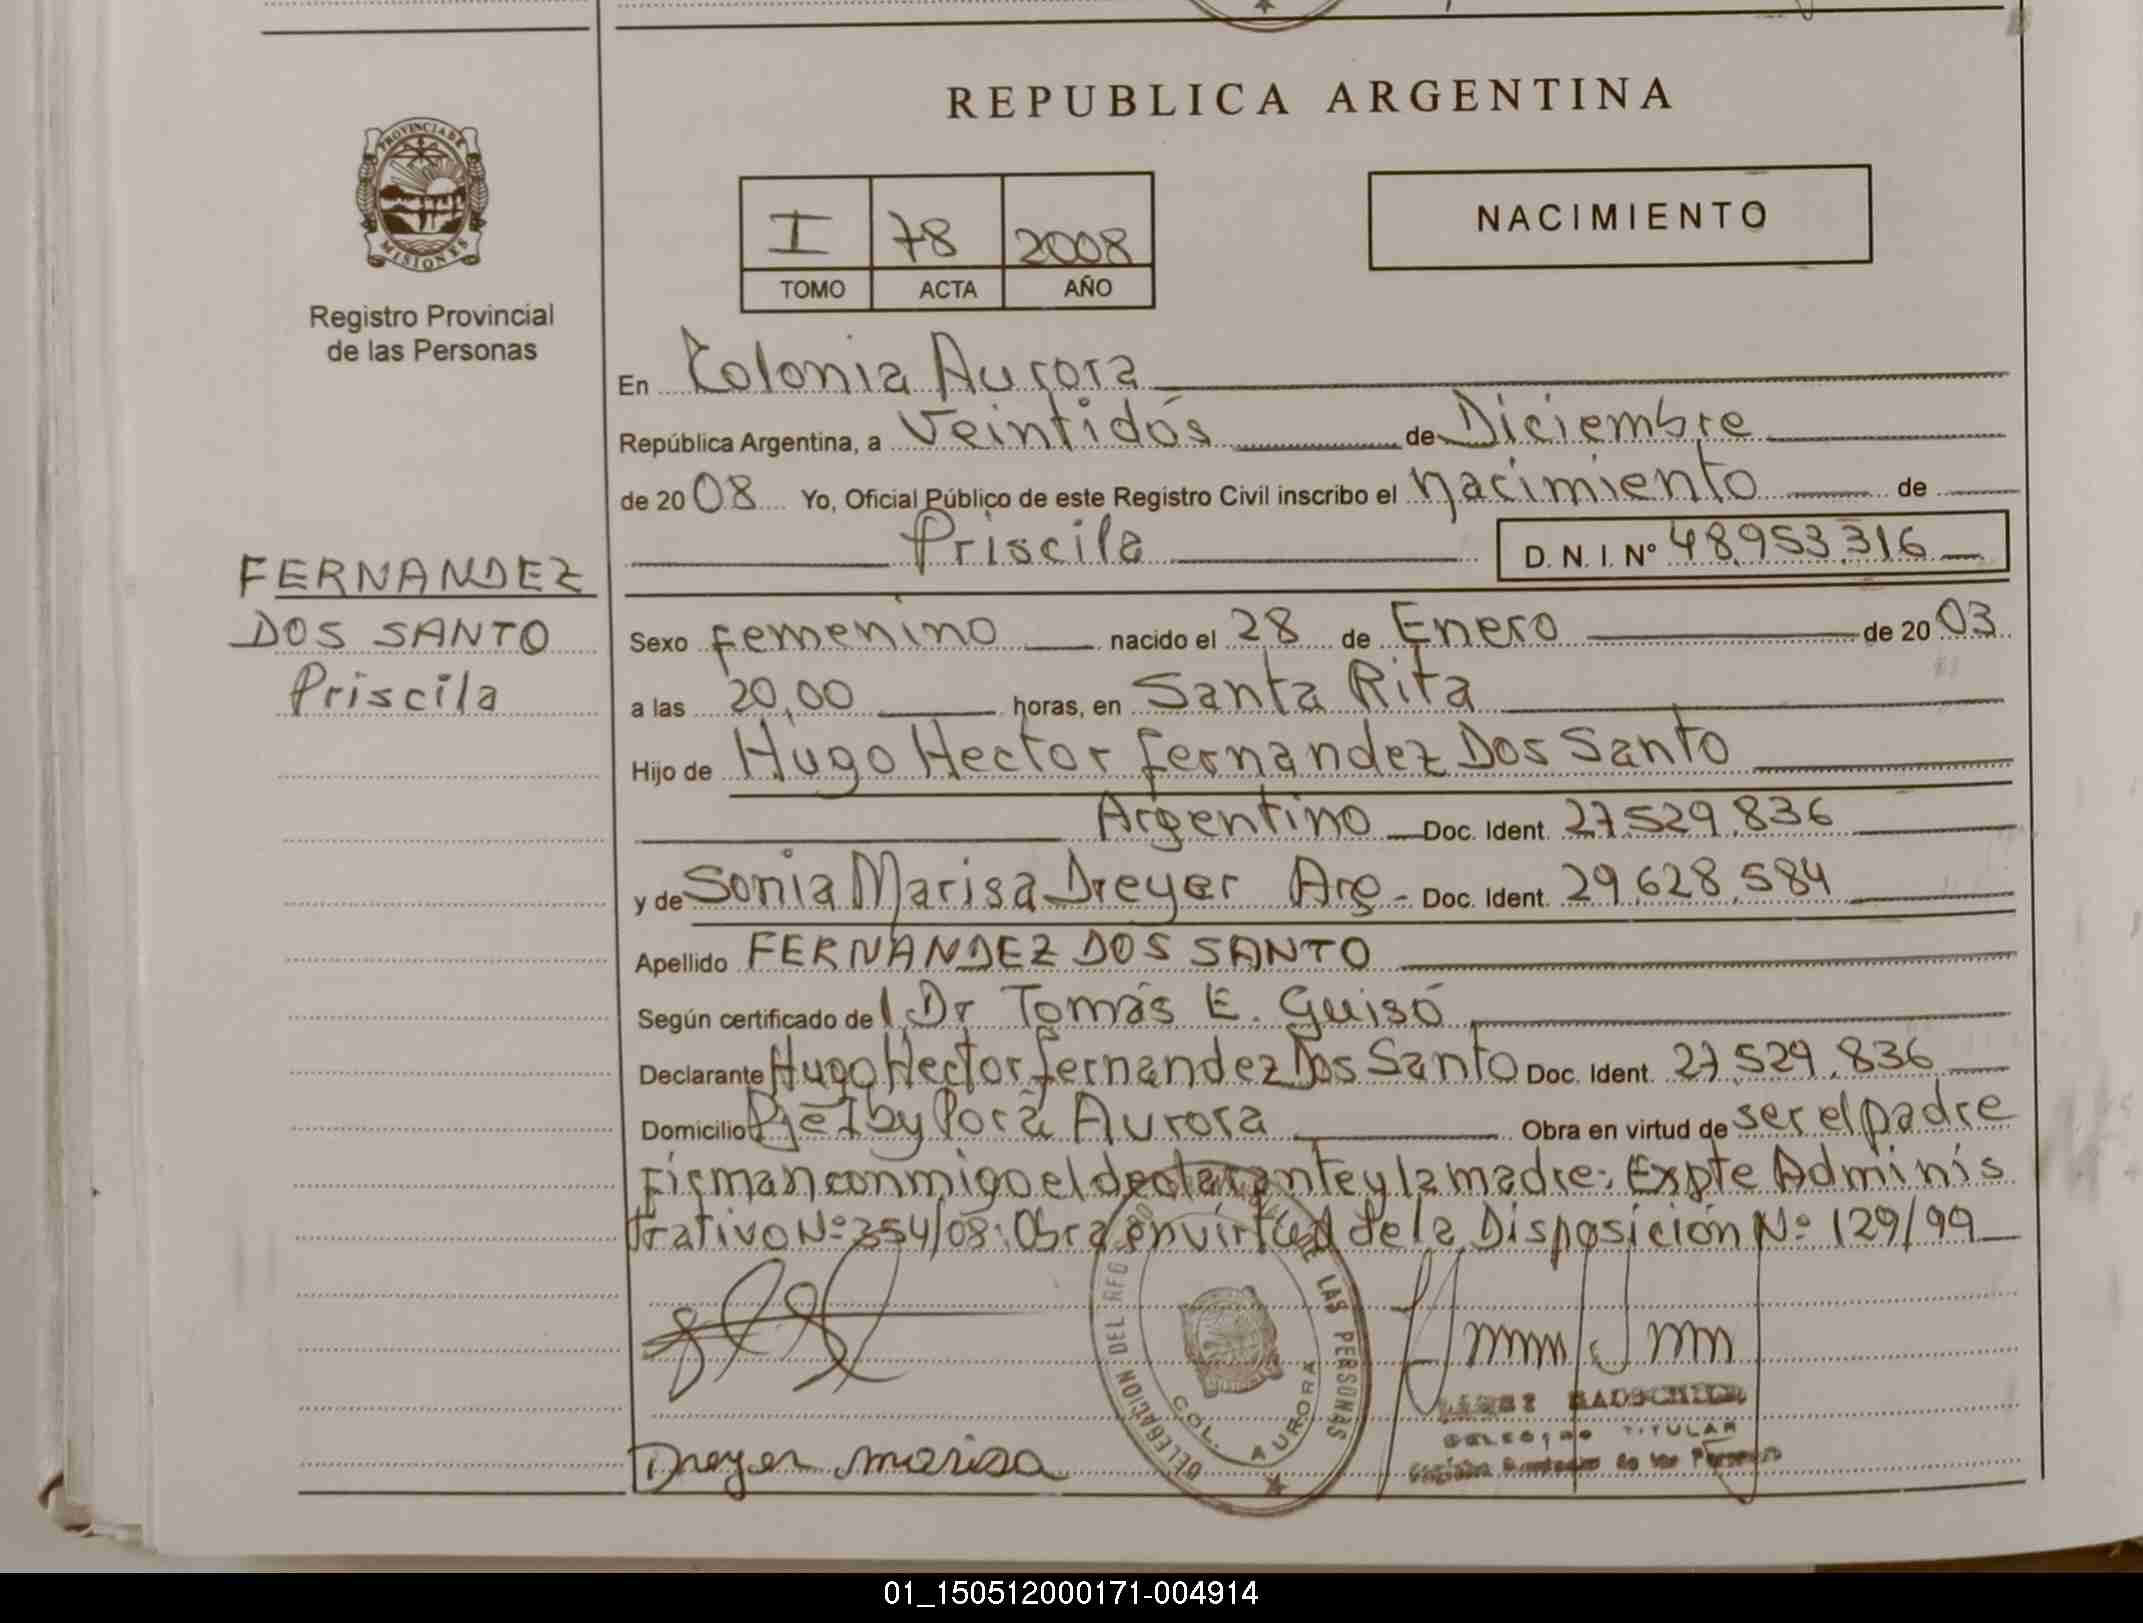 REPUBLICA ARGENTINA
PROVINCIA DE
MISIONES
Registro Provincial
de las Personas
I 78 2008
TOMO ACTA AÑO
NACIMIENTO
En Colonia Aurora
República Argentina, a Veintidós de Diciembre
de 2008 Yo, Oficial Público de este Registro Civil inscribo el nacimiento de
Priscila D. N. I. N° 48.953.316
FERNANDEZ
DOS SANTO
Priscila
Sexo femenino nacido el 28 de Enero de 2003
a las 20,00 horas, en Santa Rita
Hijo de Hugo Hector Fernandez Dos Santo
Argentino Doc. Ident. 27.529.836
y de Sonia Marisa Dreyer Arg - Doc. Ident. 29.628.584
Apellido FERNANDEZ DOS SANTO
Según certificado del Dr Tomás E. Guisó
Declarante Hugo Hector Fernandez Dos Santo Doc. Ident. 27.529.836
Domicilio Pje Iby Porá Aurora Obra en virtud de ser el padre
Firman conmigo el declarante y la madre: Expte Adminis
trativo Nº 354/08: Obra en virtud de la Disposición Nº 129/99
DELEGACION DEL REG LAS PERSONAS
COL. AURORA
TITULAR
Dreyer marisa
01_150512000171-004914